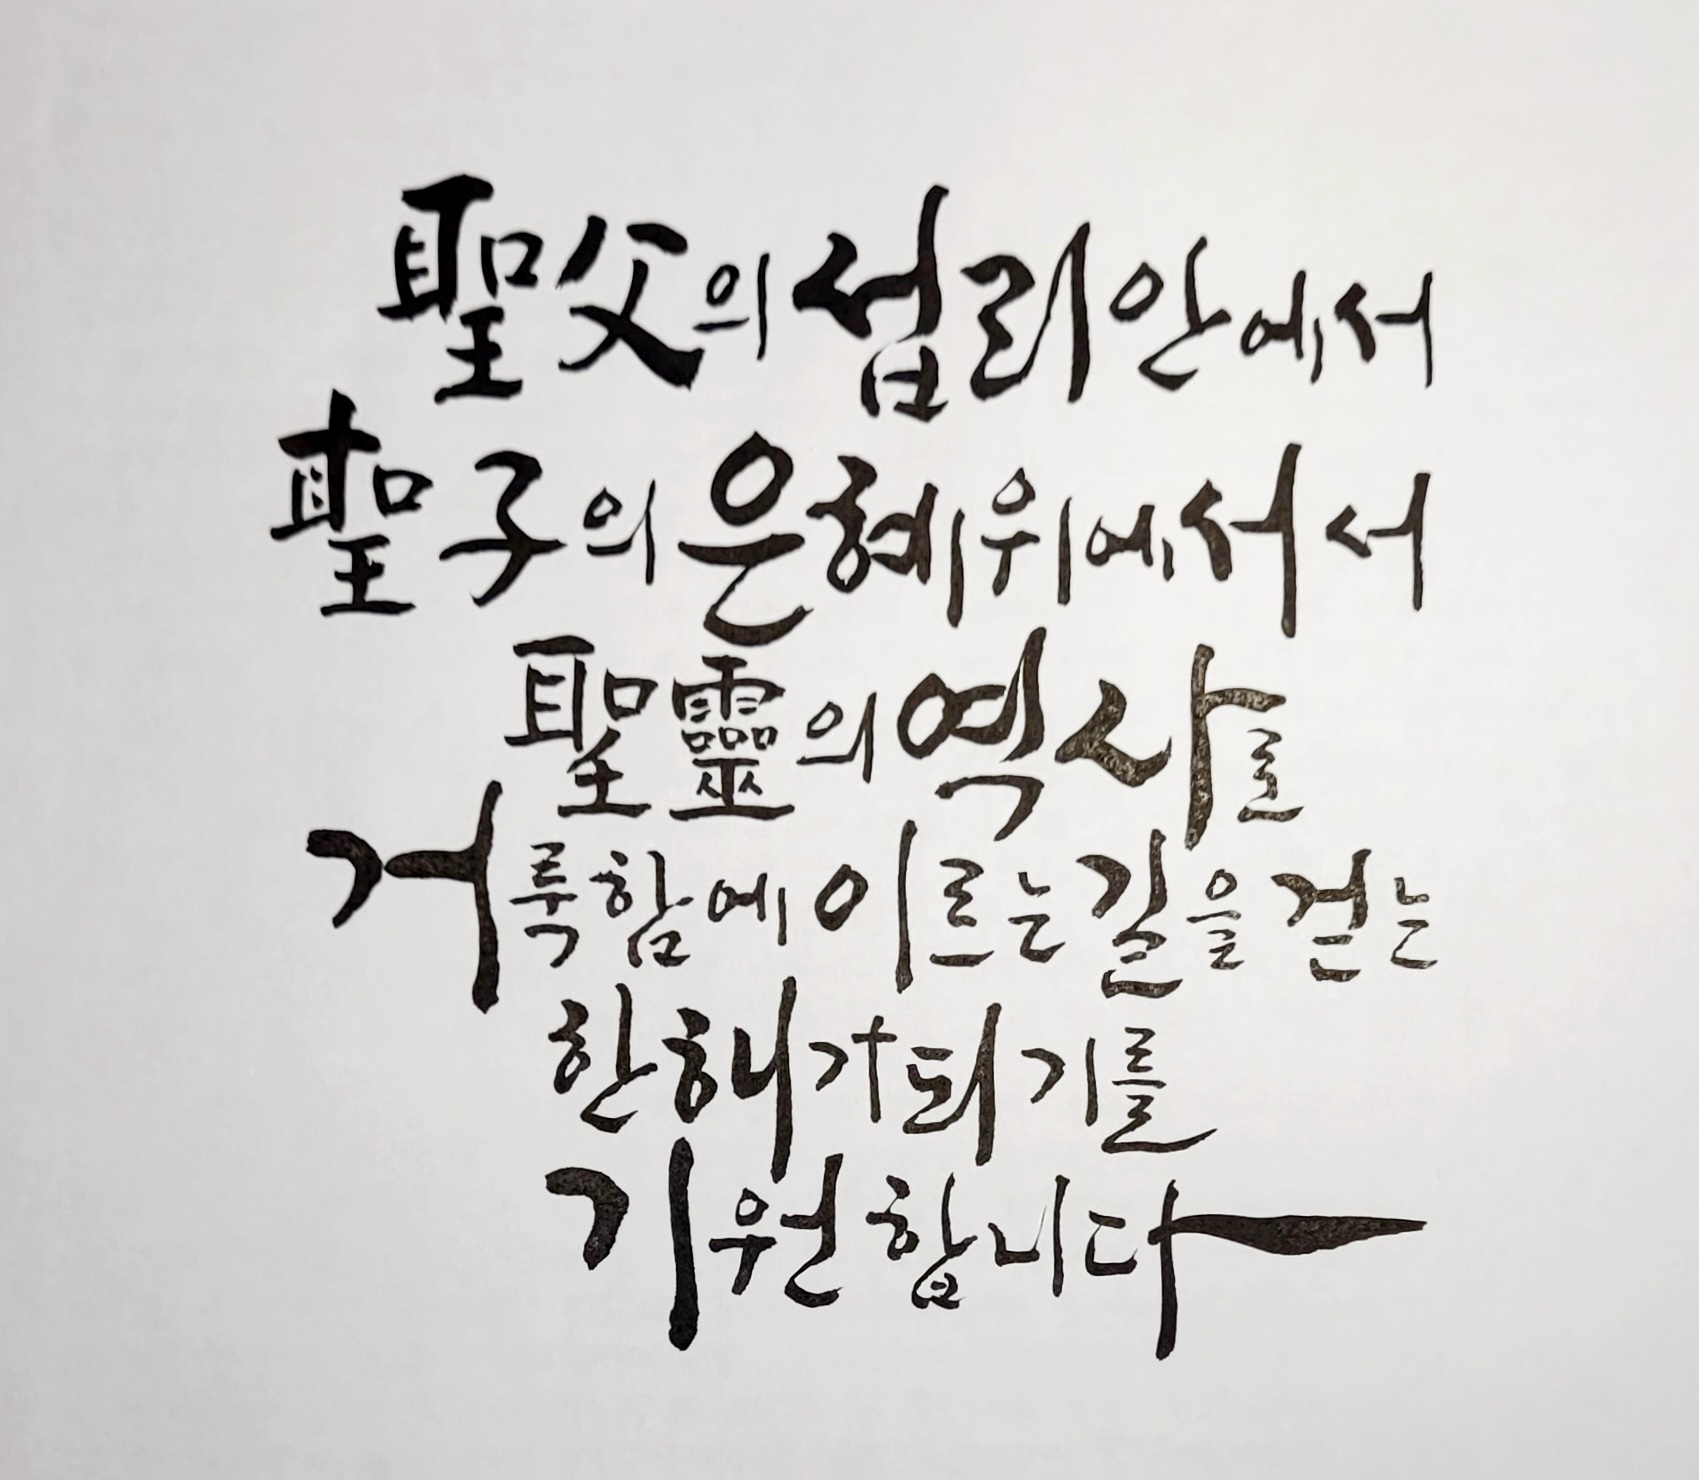 聖父의 섭리 안에서
聖子의 은혜 위에 서서
聖靈의 역사로
거룩함에 이르는 길을 걷는
한 해가 되기를
기원합니다